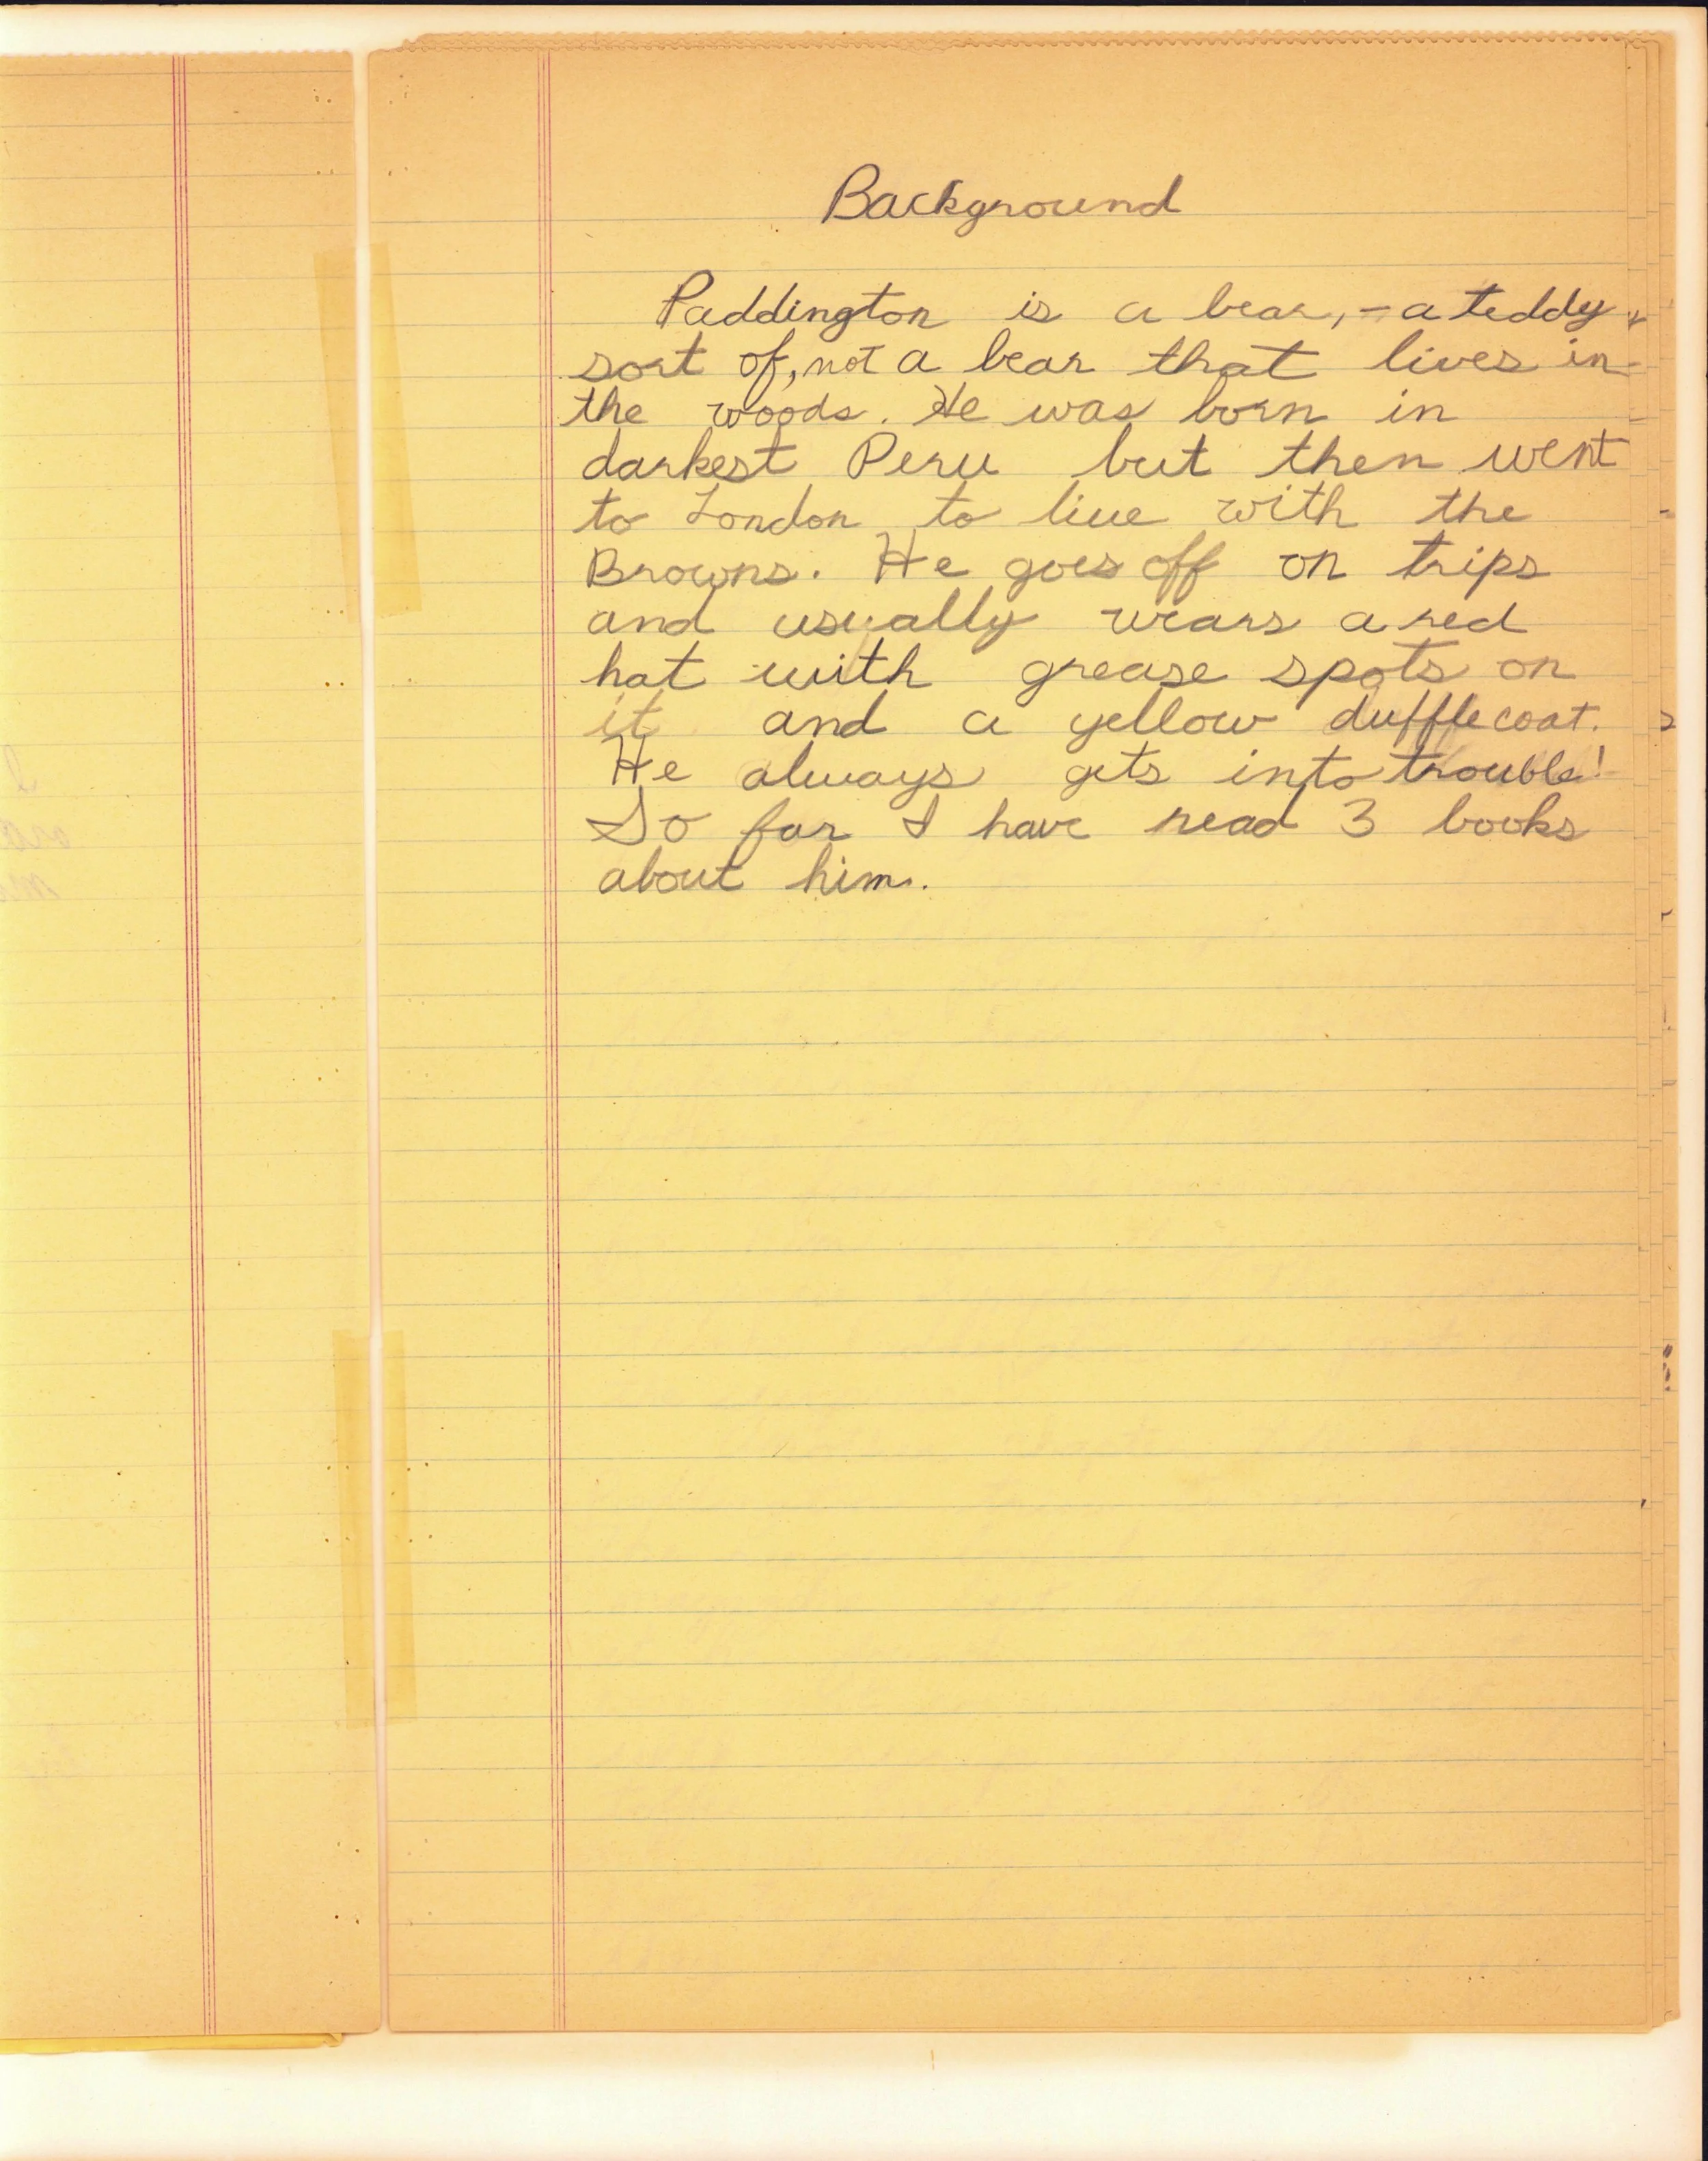 Background
Paddington is a bear, - a teddy
sort of, not a bear that lives in
the woods. He was born in
darkest Peru but then went
to London to live with the
Browns. He goes off on trips
and usually wears a red
hat with grease spots on
it and a yellow duffle coat.
He always gets into trouble!
So far I have read 3 books
about him.